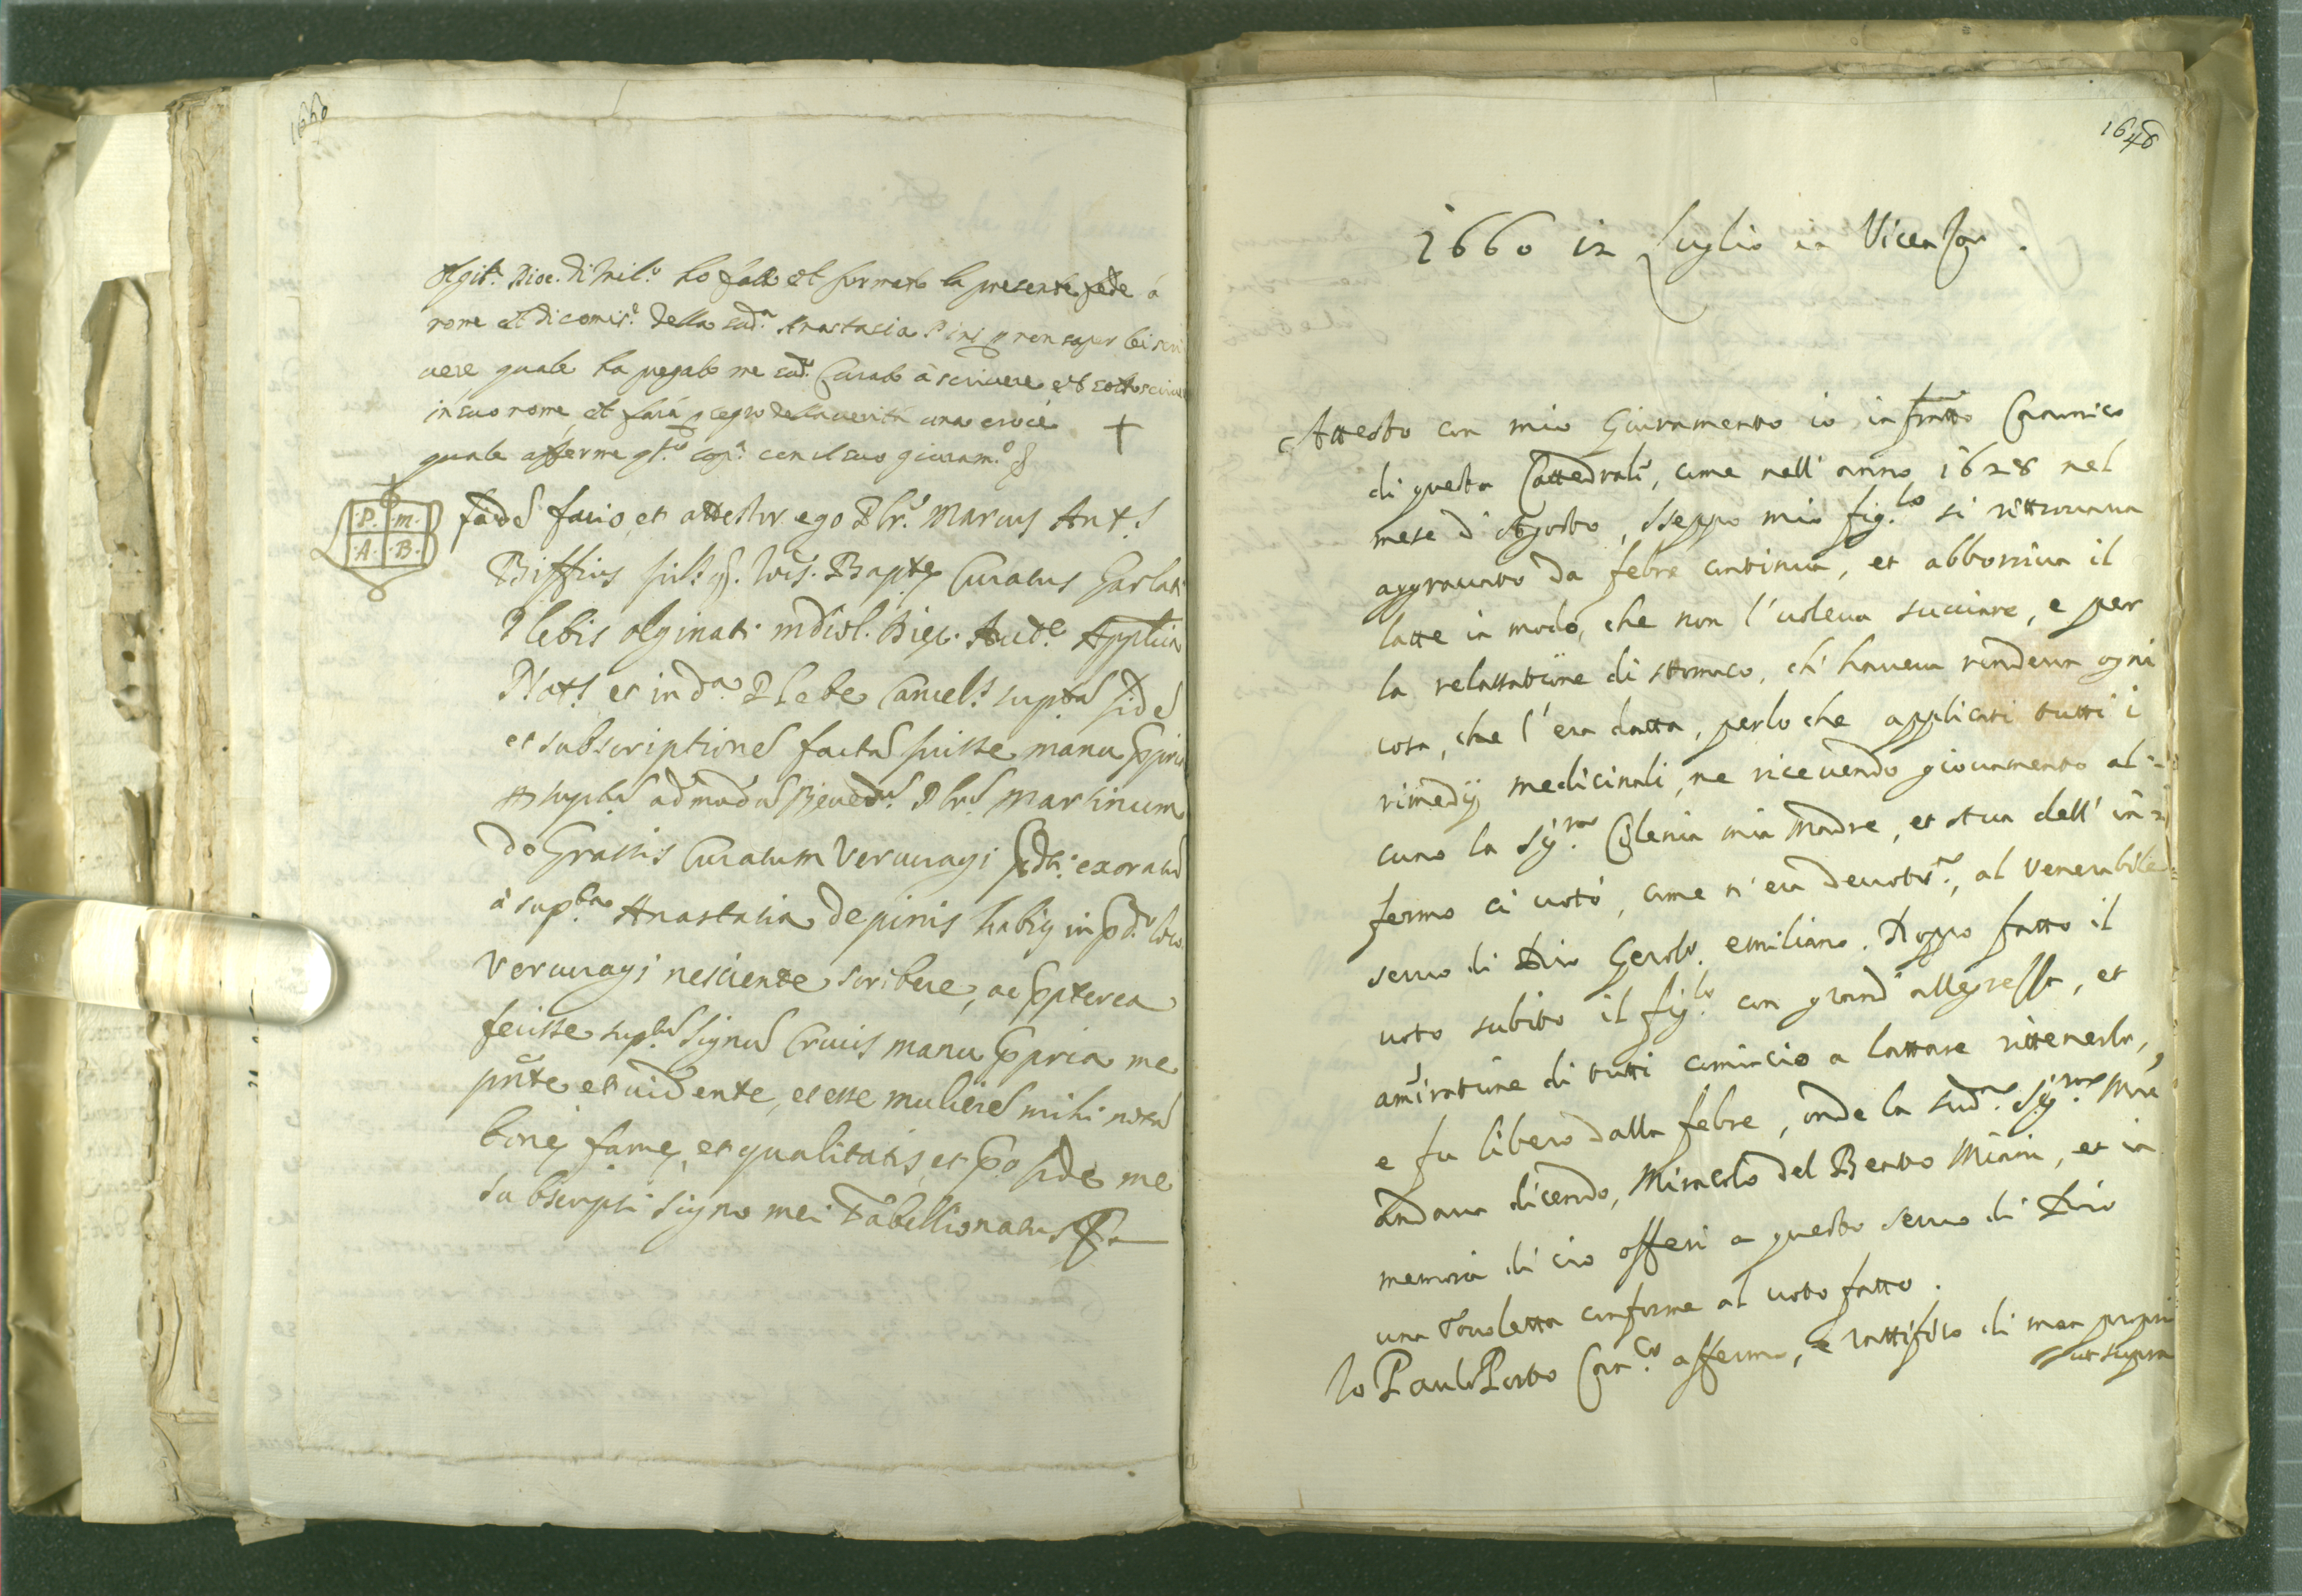 1660
Olgit.ª Dioc. di Mil.º ho fatto et formato la presente fede à
nome et di comis.e della sud.ª Anastasia Pini p non saper lei scri
uere quale ha pregato me sud.º Curato à scriuere et sottoscriuere
in suo nome, et farà p segno della uerità una croce +
quale afferma con il suo giuram.to
P. M. A. B.
fidẽ facio, et attestor ego Pbr. Marcus Ant.s
Biffius fil. q. Io: Baptę Curatus Garlati
Plebis Olginati mdiol. Dioc. Aucte Applica
Not.s et in d.ª Plebe Cancel.s supta fidẽ
et subscriptionẽ factã fuisse manu ppria
supti admodũ Reuedi Pbri Martinum
de Grassis Curatum Vercuragi exoratũ
à supta Anastasia de pinis habiẽ in pd.º loco
Vercuragi nesciente scribere, ac ppterea
fecisse suptũ signũ Crucis manu ppria me
pñte et uidente, et esse mulierẽ mihi notã
bonę famę, et qualitatis, et p fide me
subscripsi signo mei Tabellionatus
1648
1660 in Luglio in Vicenza.
Attesto con mio Giuramento io infratto Cannonico
di questa Cattedrale, come nell' anno 1628 nel
mese d' Agosto, Iseppo mio fig.lo si rittrouaua
aggrauato da febre continua, et abborriua il
latte in modo, che non l'uoleua succiare, e per
la relassatione di stomaco, ch' haueua rendeua ogni
cosa, che l'era datta, perloche applicati tutti i
rimedij medicinali, ne riceuendo giouamento al-
cuno la Sig.ra Cilenia mia Madre, et Aua dell' in-
fermo ci uotò, come n' era deuotis.ma, al Venerabile
seruo di Dio Gerol.º emiliano. Doppo fatto il
uoto subito il fig.lo con grand' allegrezza, et
amiratione di tutti cominciò a lattare rittenerlo,
e fu libero dalla febre, onde la sud.ª Sig.ra Mre
andaua dicendo, Miracolo del Beato Miani, et in
memoria di ciò offerì a questo seruo di Dio
una touoletta conforme al uoto fatto.
Io Paulo Porto Can.co affermo, e rattifico di man propria
ut supra